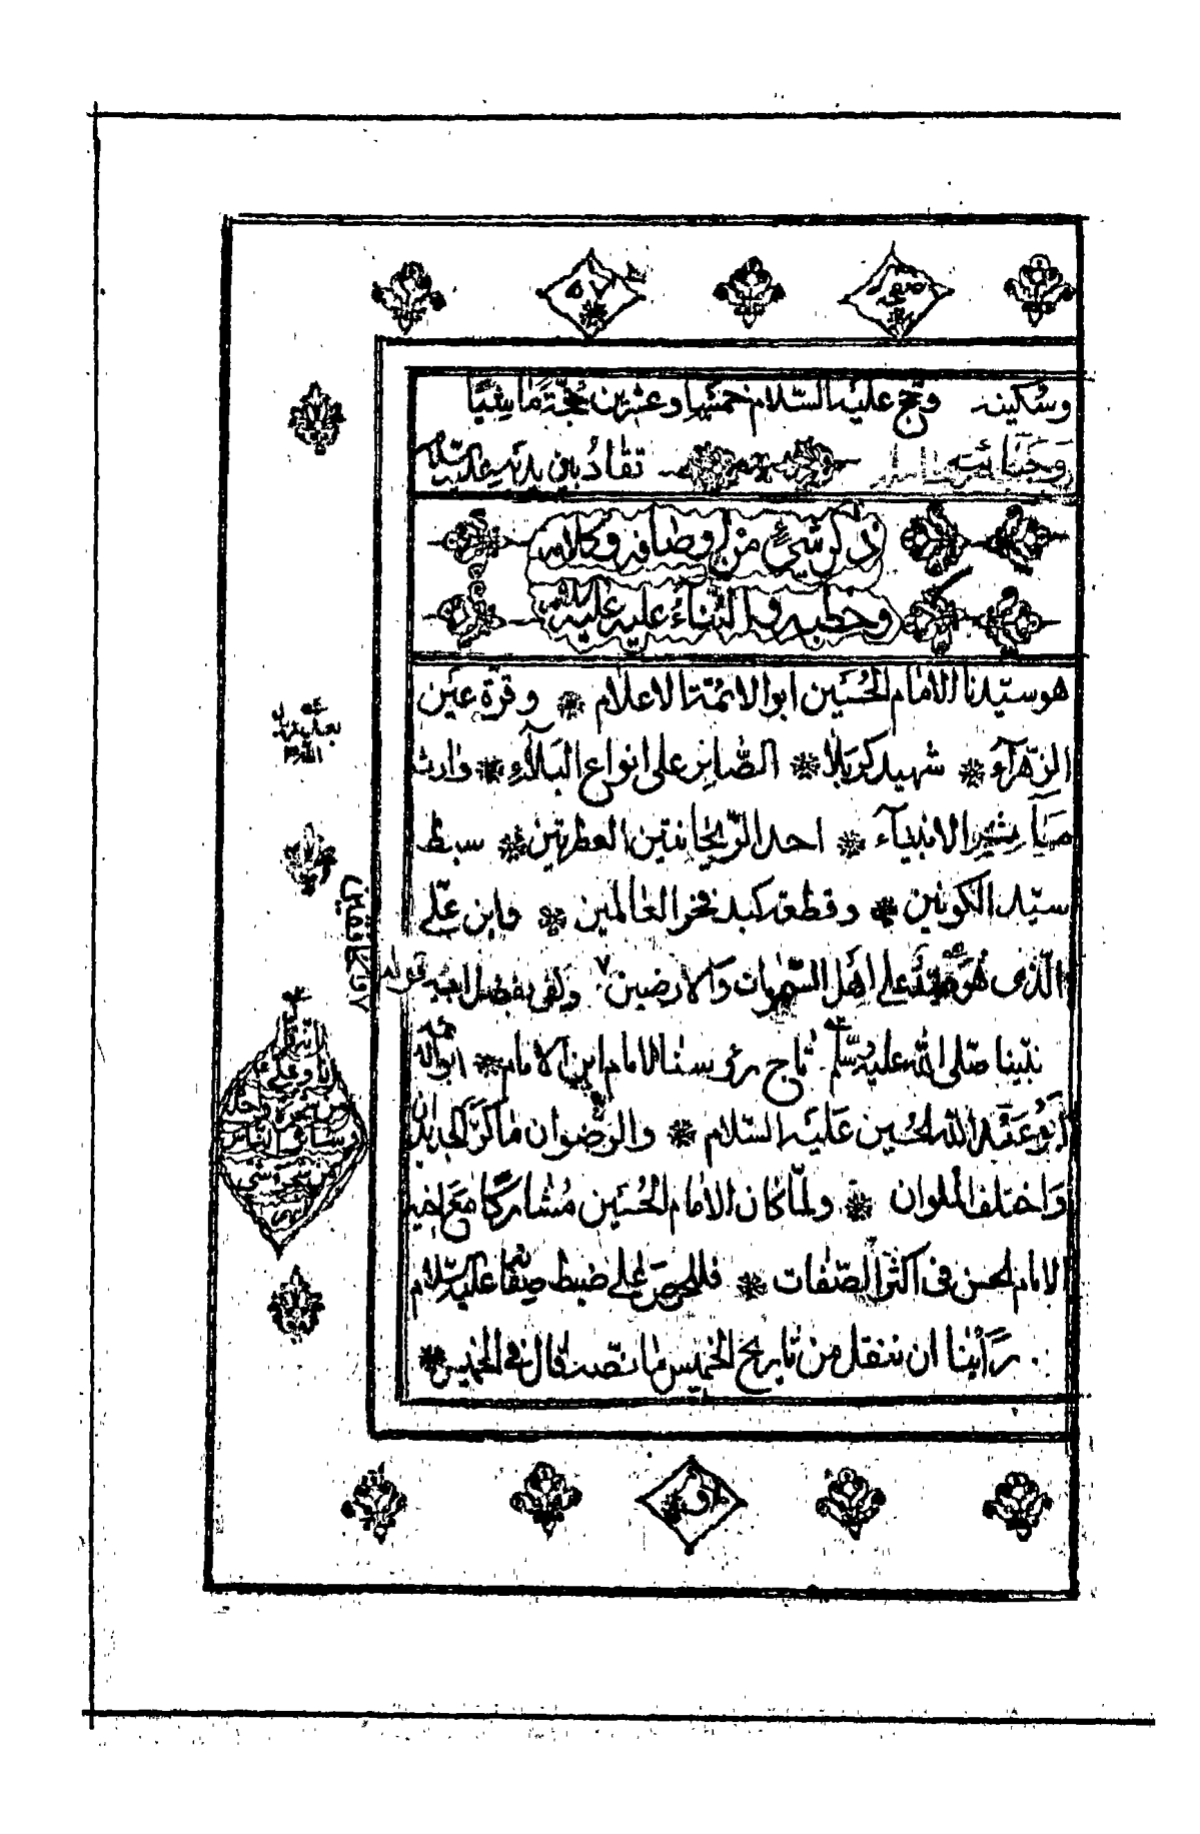 صفر
وسكينه وحج عليه السلام خمسا وعشرين حجة ماشيا
وجنائبه تقاد بين يديه عليه السلام
ذكر شئ من اوصافه وكلامه
وخطبه والثناء عليه عليه السلام
هو سيدنا الامام الحسين ابو الائمة الاعلام وقرة عين
الزهرآء شهيد كربلا الصابر على انواع البلآء وارث
الانبيآء احد الريحانتين العطرتين سبط
سيد الكونين وقطعة كبد فخر العالمين وابن على
الذى هو على اهل السموات والارضين ولقى بفضل ابيه قوله
نبينا صلى الله عليه وسلم تاج رؤسنا الامام ابن الامام ابو
ابو عبد الله الحسين عليه السلام والرضوان ما كر الجديدان
واختلف الملوان ولما كان الامام الحسين مشاركا مع اخيه
الامام الحسن فى اكثر الصفات فللحرص على ضبط صفاته عليه السلام
رأينا ان ننقل من تاريخ الخميس ما نصه قال فى الخميس
انا وعلى
من شجرة واحدة
وسائر الناس
من شجر شتى